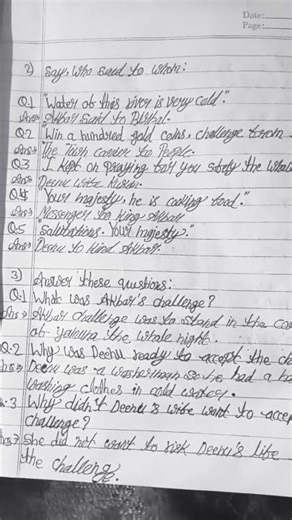 Date:
Page:
2) Say, who said to whom:
Q.1 "Water of this river is very cold".
Ans⇒ Akbar said to Birbal.
Q.2 "Win a hundred gold coins, challenge
Ans⇒ The Town to People.
Q.3 I kept on praying for you safety the whole
Ans⇒ Deenu wife
Q.4 "Your majesty, he is cooking food".
Ans⇒ Messenger to King Akbar
Q.5 "Salutations, Your majesty."
Ans⇒ Deenu to Kind Akbar.
3) Answer these questions:
Q.1 What was Akbar's challenge?
Ans⇒ Akbar challenge was to stand in the
of the whole night.
Q.2 Why was Deenu ready to accept the
Ans⇒ Deenu was a washerman so he had a
washing clothes in cold water.
Q.3 Why didn't Deenu's wife want to accep
challenge?
Ans⇒ She did not want to risk Deenu's life
the challenge.